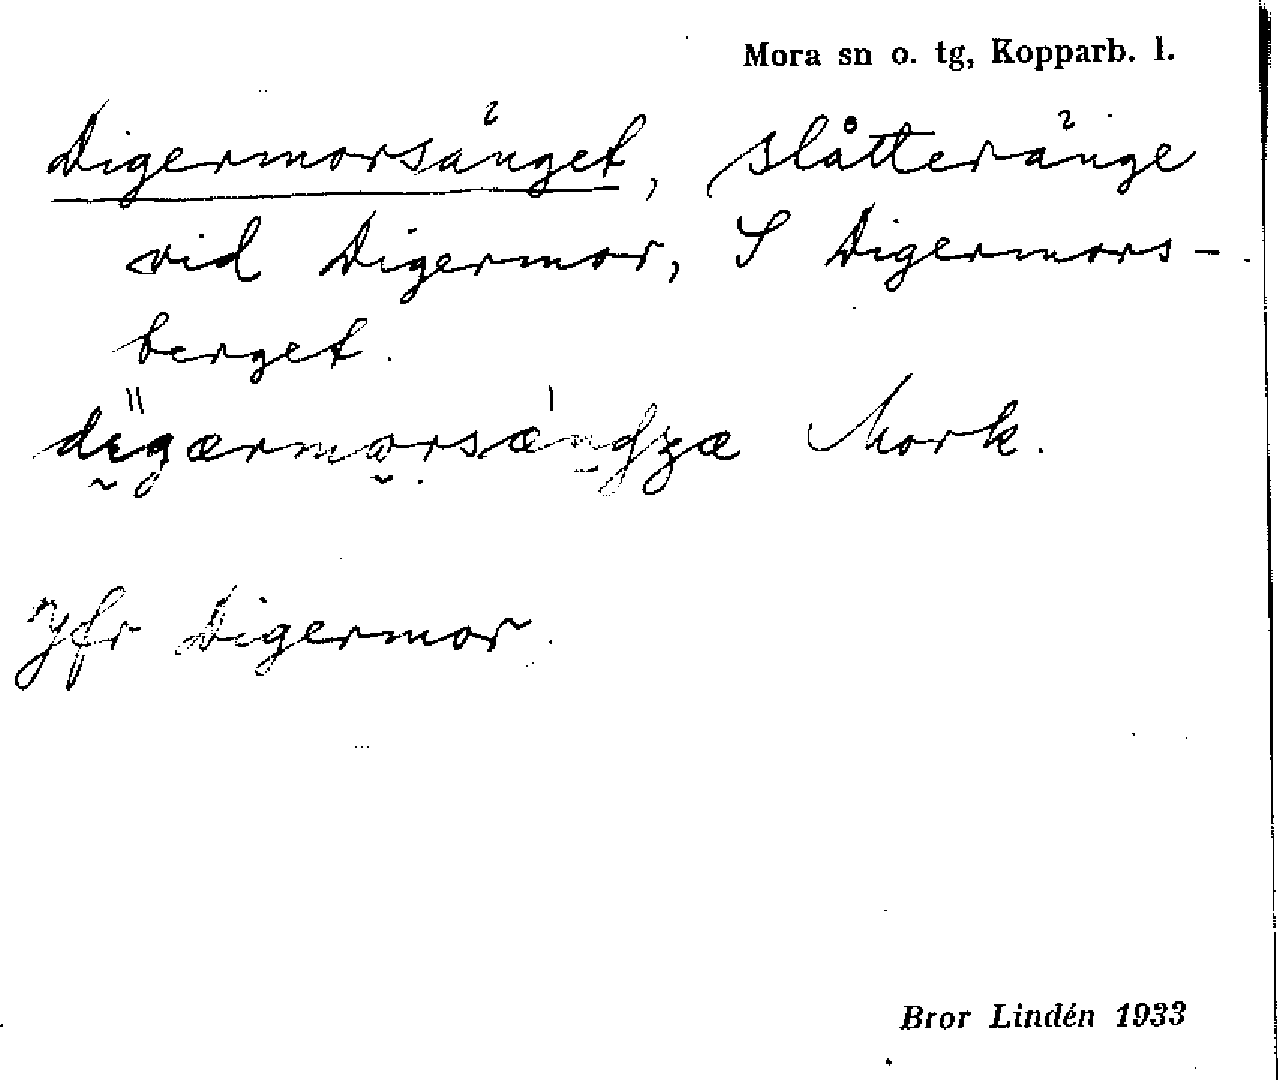 Mora sn o. tg, Kopparb. l.
Digermorsänget, slåtteränge
vid Digermor, S Digermors-
berget.
Mork.
Jfr Digermor.
Bror Lindén 1933